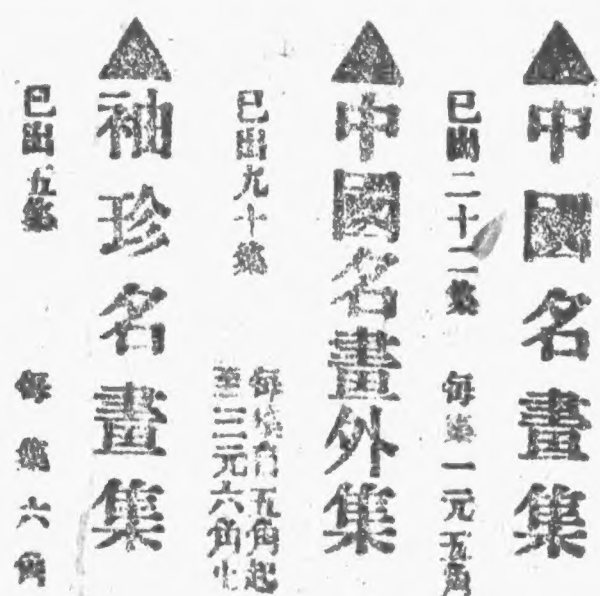 ▲中國名畫集
已出二十二集 每集一元五角
▲中國名畫外集
已出九十集
每集自五角起
至三元六角止
▲袖珍名畫集
已出五集 每集六角